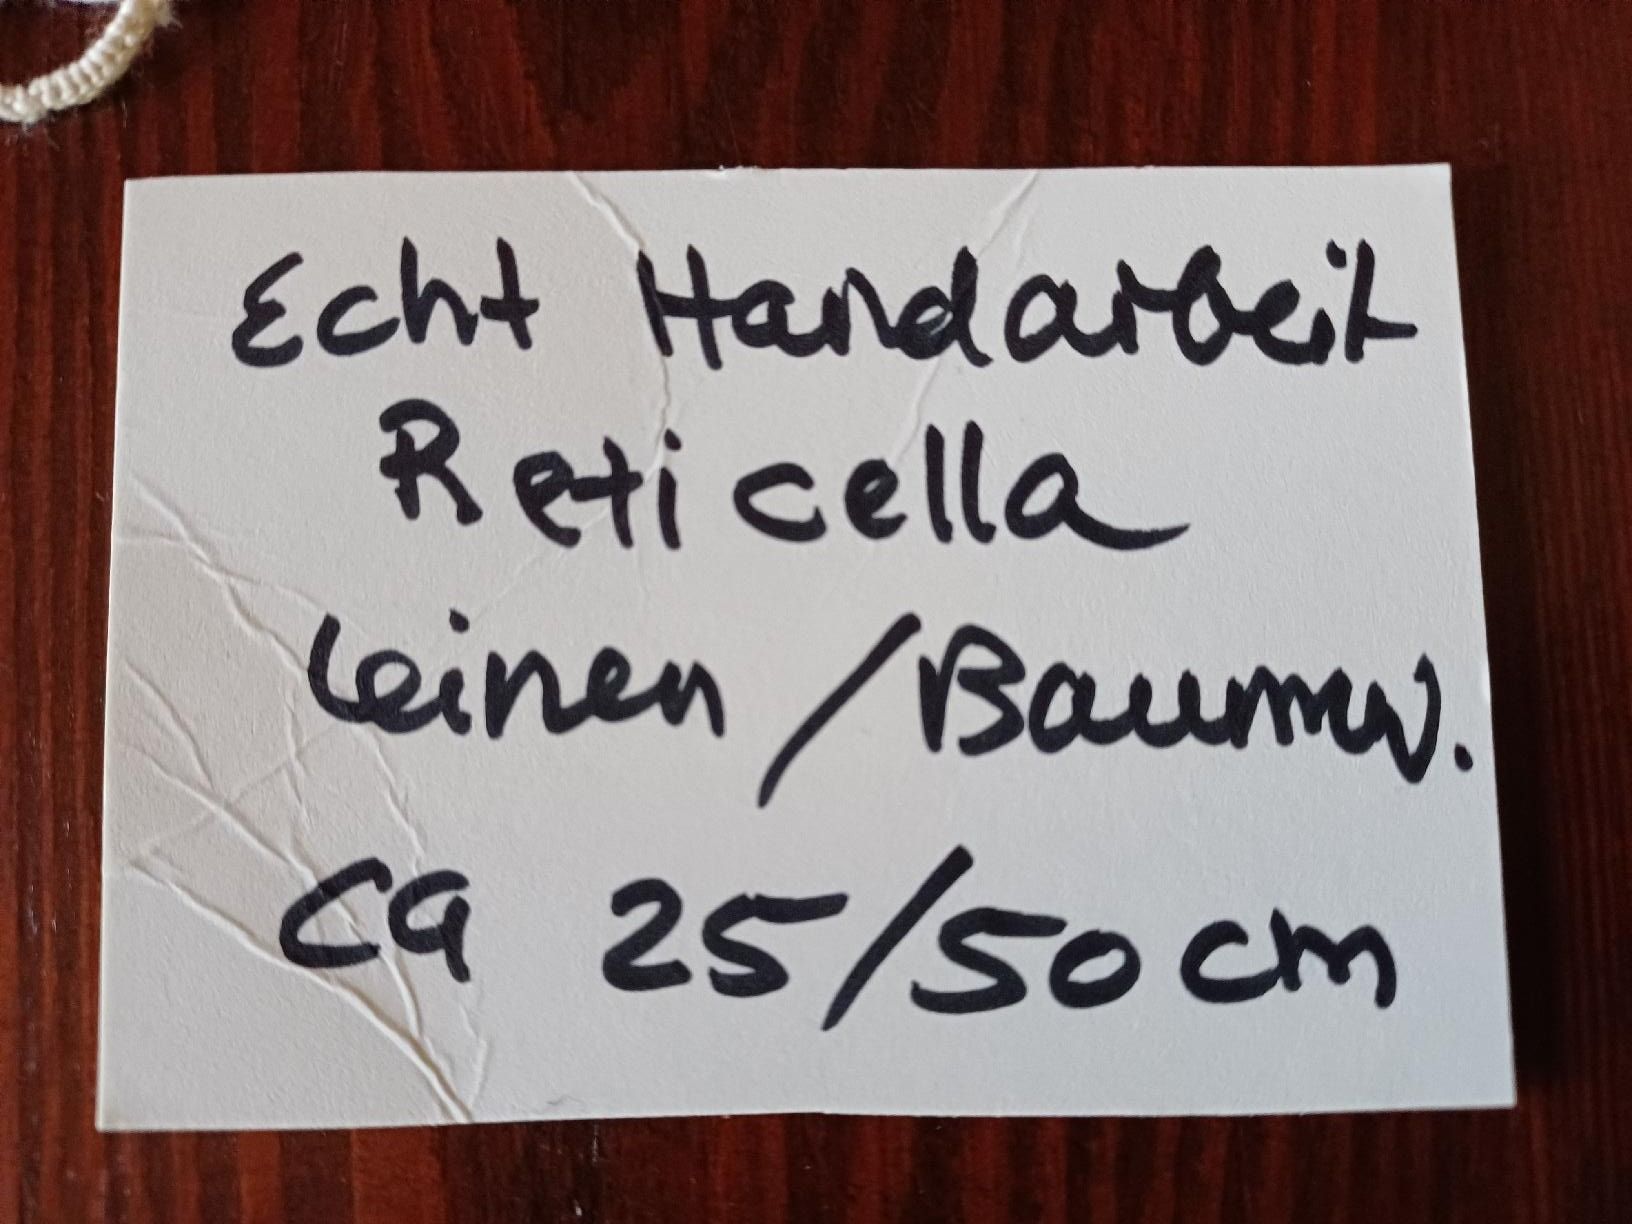 Echt Handarbeit
Reticella
Leinen / Baumw.
ca 25/50 cm